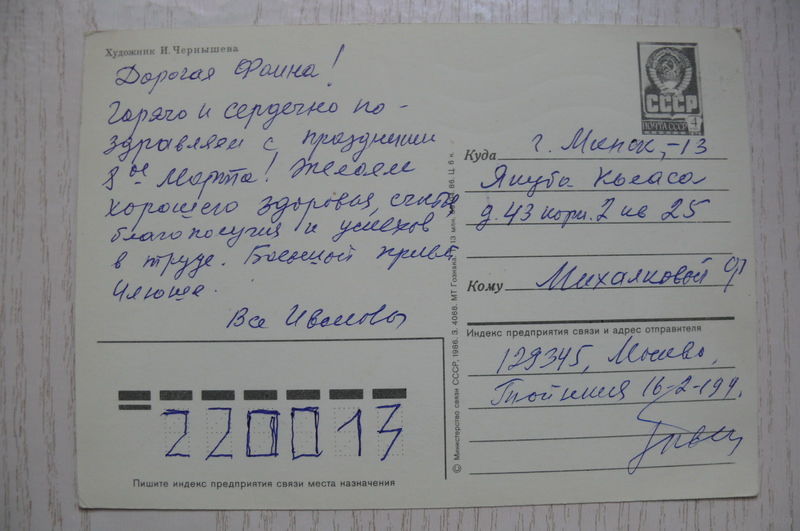 Художник И. Чернышева
Дорогая Фаина!
Горячо и сердечно по-
здравляем с праздником
8 ое Марта! Желаем
хорошего здоровья, счастья
благополучия и успехов
в труде. Большой привет
Илюше.
Все Ивановы
СССР
ПОЧТА СССР 4
Куда г. Минск,-13
Якуба Коласа
д. 43 корп. 2 кв 25
Кому Михалковой Ф
Индекс предприятия связи и адрес отправителя
129345, Москва,
16-2-199.
220013
Пишите индекс предприятия связи места назначения
© Министерство связи СССР, 1986. З. 4088. МТ Гознака.